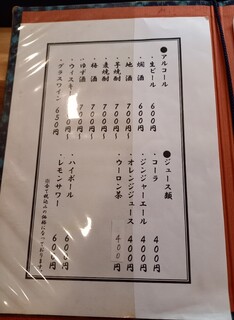 ●アルコール
・生ビール 600円
・燗酒 600円
・地酒 700円～
・芋焼酎 700円～
・麦焼酎 700円～
・梅酒 700円～
・ゆず酒 700円～
・ウィスキー 700円～
・グラスワイン 650円
●ジュース類
・コーラ 400円
・ジンジャーエール 400円
・オレンジジュース 400円
・ウーロン茶 400円
・ハイボール 600円
・レモンサワー 600円
※全て税込みの価格になっております。